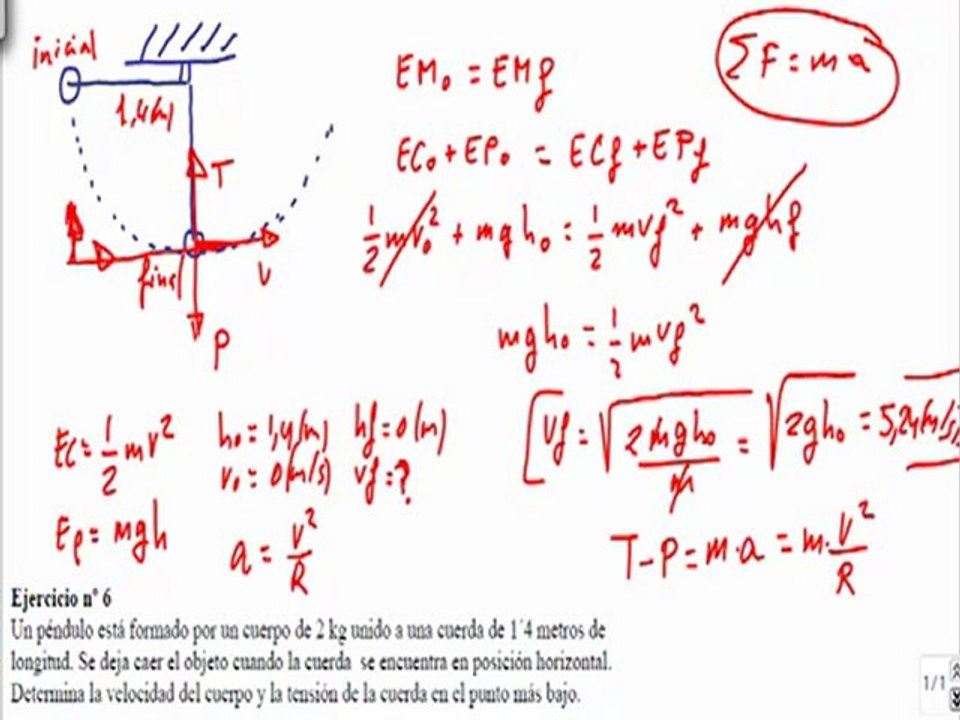 inicial
1,4(m)
T
final
v
P
EM₀ = EMf
ΣF = m a
EC₀ + EP₀ = ECf + EPf
1/2 mv₀² + mgh₀ = 1/2 mvf² + mghf
mgh₀ = 1/2 mvf²
vf = √(2mgh₀/m) = √2gh₀ = 5,24(m/s)
Ec = 1/2 mv²
h₀ = 1,4(m) hf = 0(m)
v₀ = 0(m/s) vf = ?
Ep = mgh
a = v²/R
T-P = m·a = m·v²/R
Ejercicio nº 6
Un péndulo está formado por un cuerpo de 2 kg unido a una cuerda de 1´4 metros de
longitud. Se deja caer el objeto cuando la cuerda se encuentra en posición horizontal.
Determina la velocidad del cuerpo y la tensión de la cuerda en el punto más bajo.
1/1